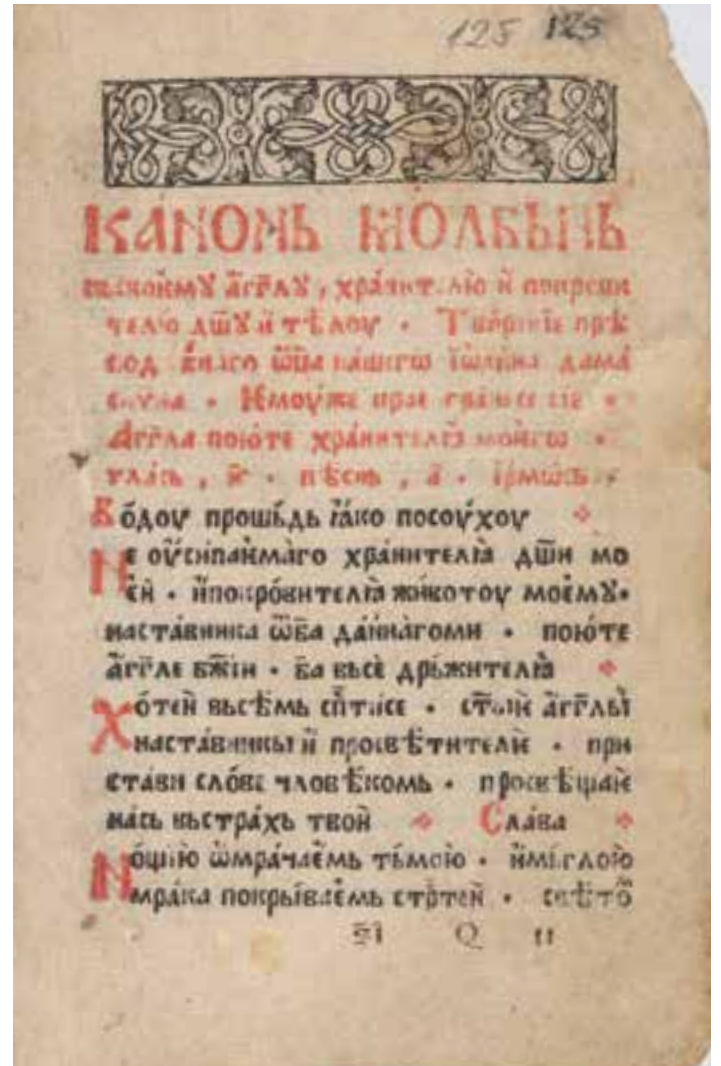 125 125
КА́НОНЬ МО́ЛБЬНЬ
а҆́гг҃лꙋ , хра́нителю и҆
телю дш҃ꙋ и҆ тѣ́лоу • Тво́рѥнїе прѣ
ѡц҃а на́шегѡ дама́
• И҆моу́же •
А҆́гг҃ла пою́те хра́нителꙗ мое҆гѡ •
гла́сь , и҃ • пѣ́снь , а҃ • і҆рмо́сь •
Во́доу прошь́дь ꙗ҆́ко посоу́хоу
Не оу҆сипаѥ҆ма́го хра́нителꙗ дш҃и мо
ѥ҆́и • и҆покро́вителꙗ живо́тоу моѥ҆́мꙋ •
наста́вника ѿб҃а да́ннагоми • пою́те
а҆́гг҃ле бж҃їи • ба вьсѐ дрьжи́телꙗ
Хо́теи вьсѣ́мь сп҃ти́се • ст҃ы́ѥ а҆́гг҃лы
наста́вникы и҆ просвѣти́телѥ • при
ста́ви сло́ве чловѣ́комь • просвѣщаѥ
на́сь вьстра́хь твои҆ Сла́ва
Но́щїю ѡ҆мрача́ѥмь тьмо́ю • и҆мьгло́ю
мра́ка покрыва́ѥмь стр҃теи҆ • свѣто
Q ıı